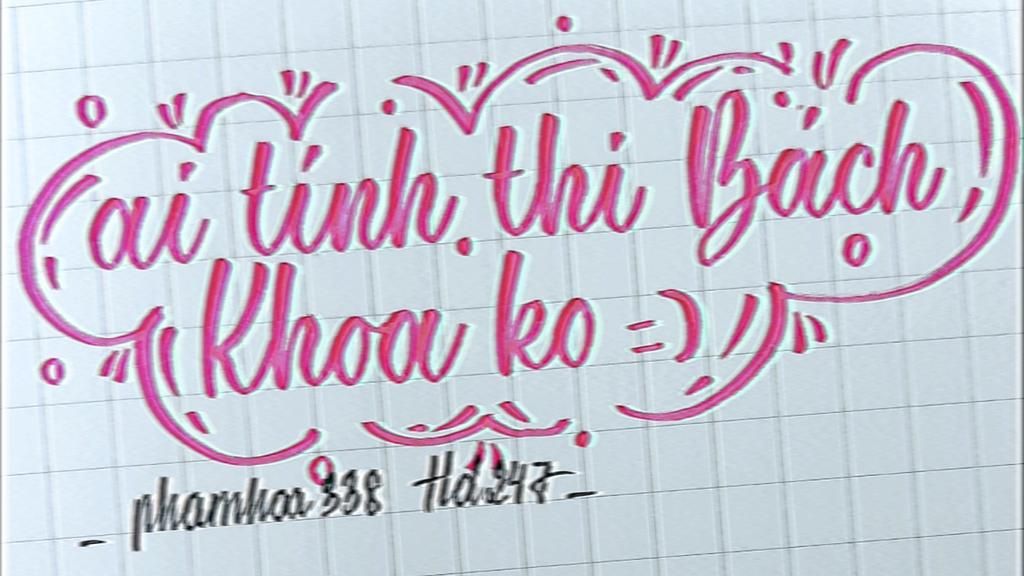 ai tính thi Bách
Khoa ko =)
- phamhoa338 Hd247 -